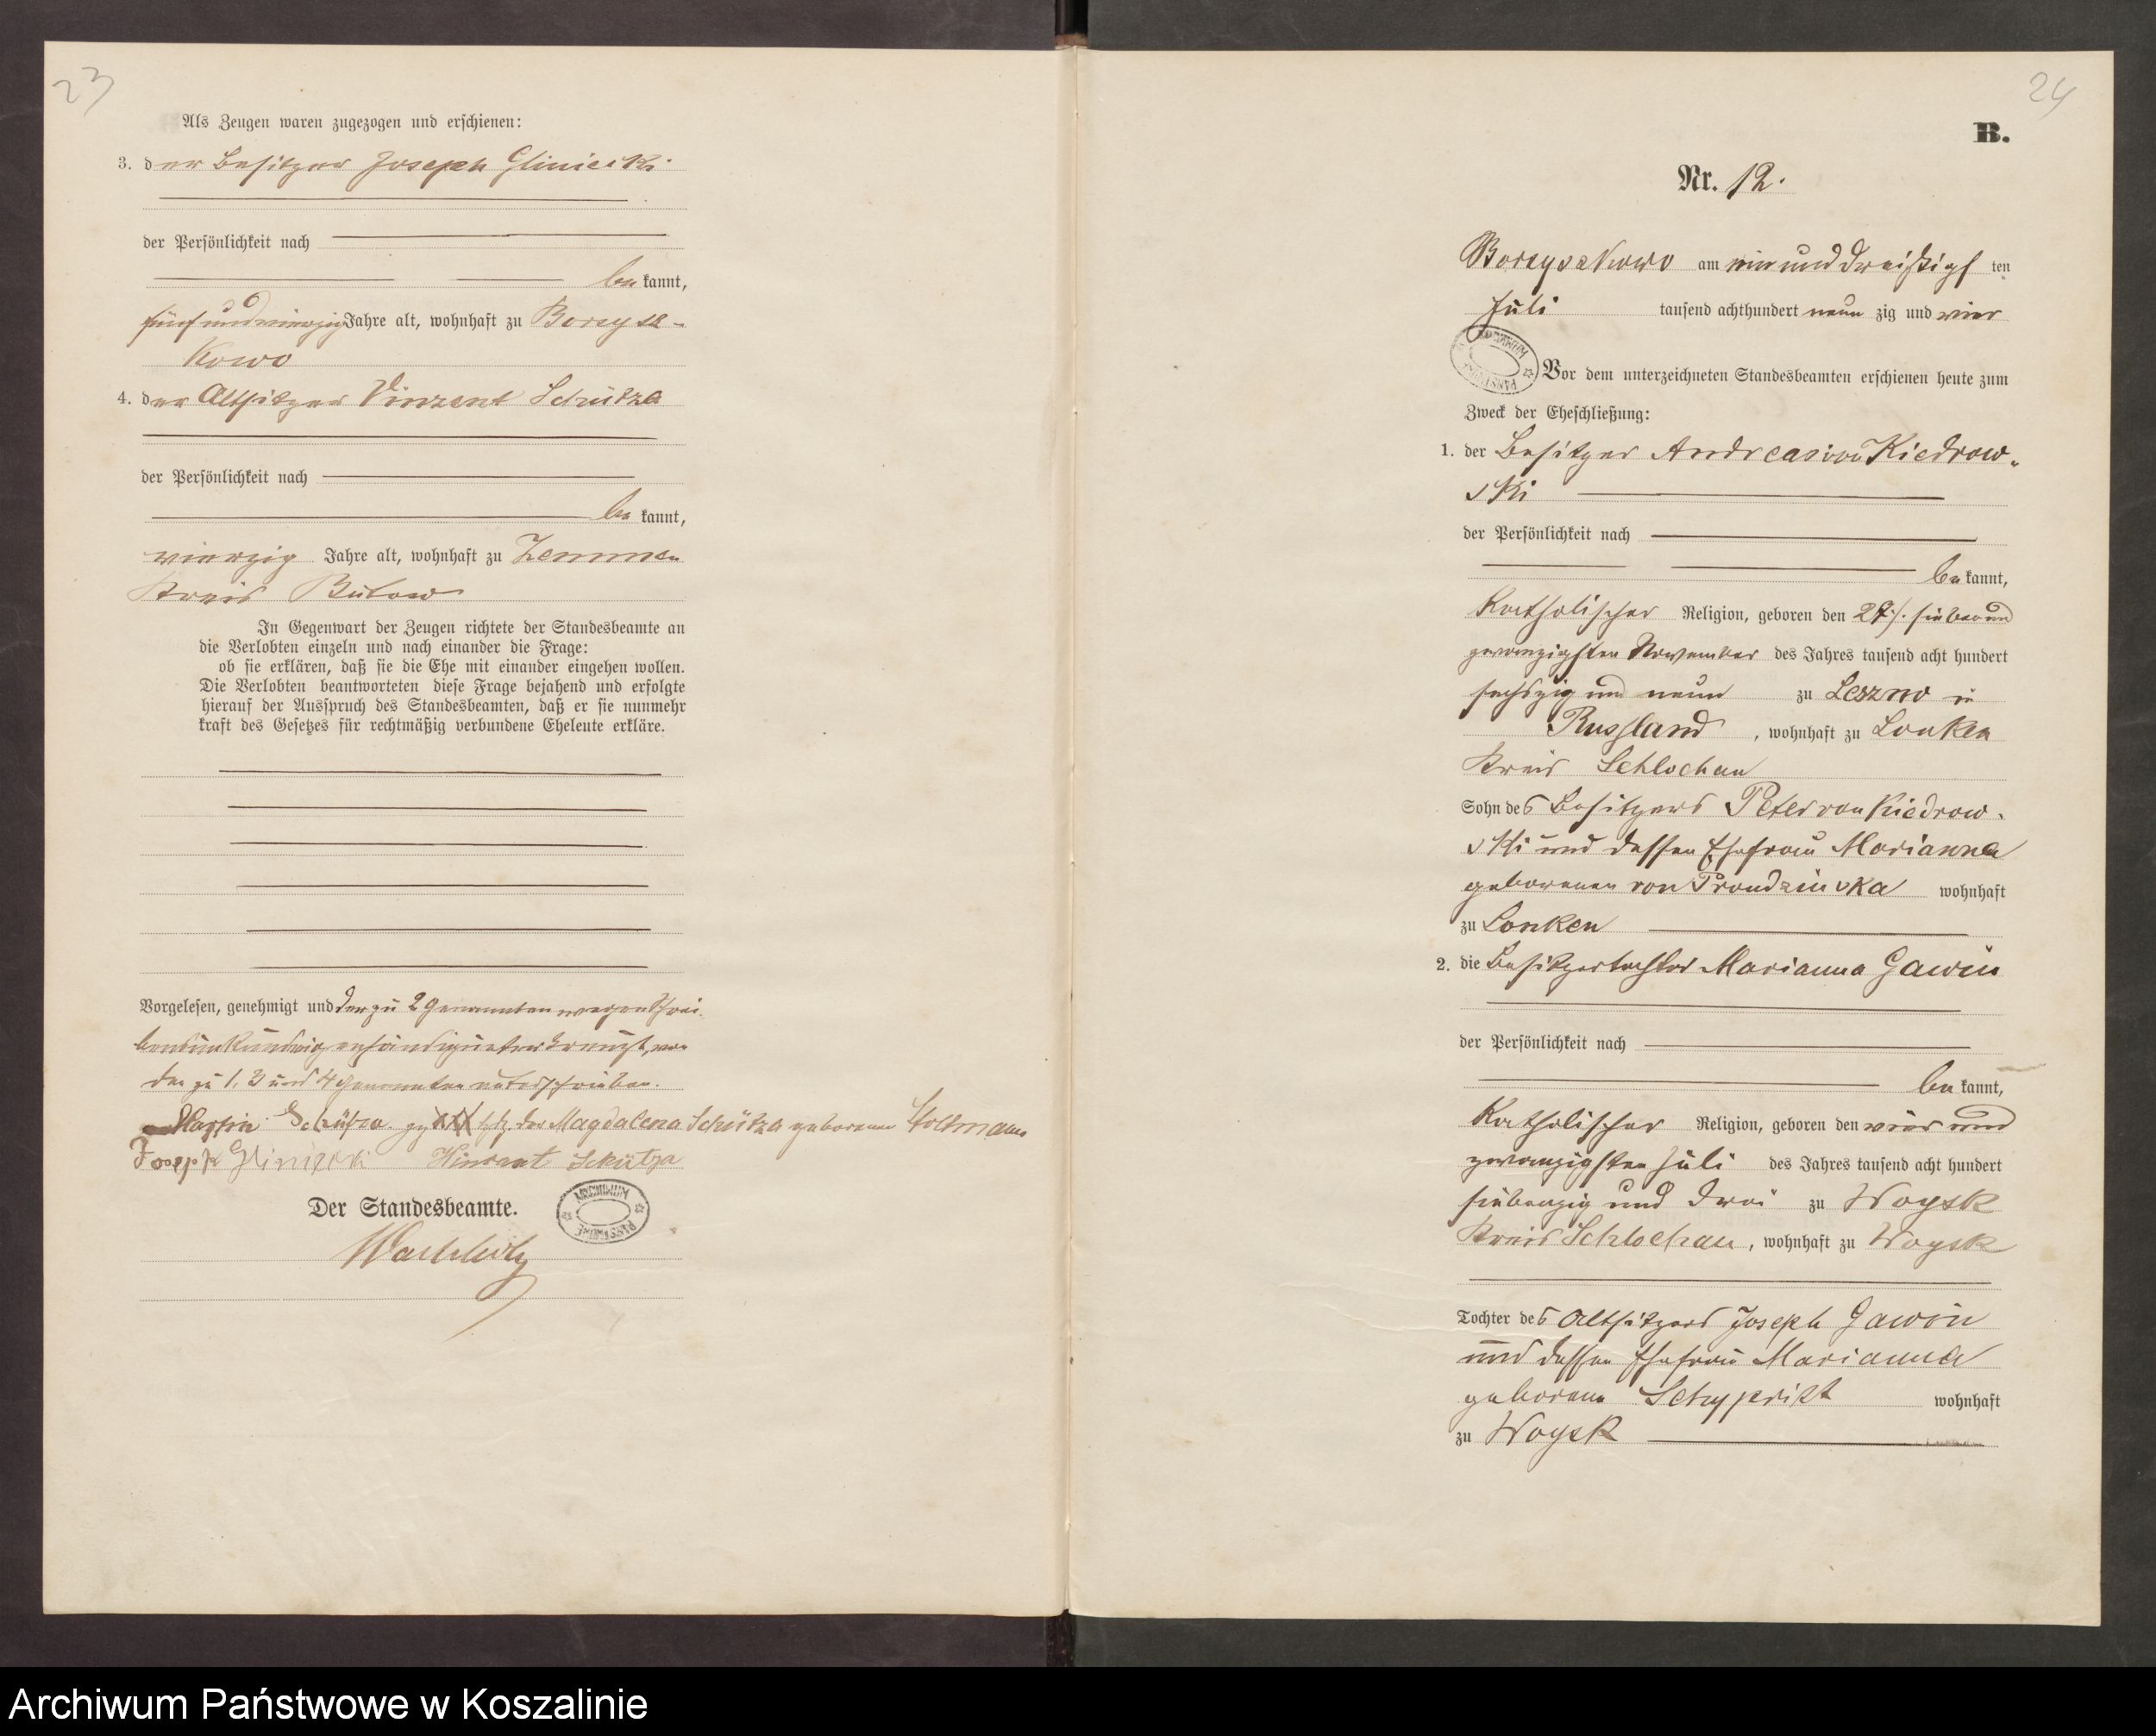 23
Als Zeugen waren zugezogen und erschienen:
3. der Besitzer Joseph Gliniecki
der Persönlichkeit nach
bekannt,
fünfundvierzig Jahre alt, wohnhaft zu Borzysz-
kowo
4. der Altsitzer Vinzent Schütza
der Persönlichkeit nach
bekannt,
vierzig Jahre alt, wohnhaft zu Zemmen
Kreis Bütow
In Gegenwart der Zeugen richtete der Standesbeamte an
die Verlobten einzeln und nach einander die Frage:
ob sie erklären, daß sie die Ehe mit einander eingehen wollen.
Die Verlobten beantworteten diese Frage bejahend und erfolgte
hierauf der Ausspruch des Standesbeamten, daß er sie nunmehr
kraft des Gesetzes für rechtmäßig verbundene Eheleute erkläre.
Vorgelesen, genehmigt und der zu 2 Genannten wegen Schrei-
bensunkundig eigenhändig unterkreuzt, von
den zu 1, 3 und 4 Genannten unterschrieben.
Martin Schütza. XXX der Magdalena Schütza geborenen Stoltmann
Joseph Gliniecki Winzent Schütza
Der Standesbeamte.
ARCHIWUM PAŃSTWOWE
24
B.
Nr. 12.
Borzyszkowo am einunddreißigsten
Juli tausend achthundert neunzig und vier
ARCHIWUM PAŃSTWOWE
Vor dem unterzeichneten Standesbeamten erschienen heute zum
Zweck der Eheschließung:
1. der Besitzer Andreas von Kiedrow-
ski
der Persönlichkeit nach
bekannt,
katholischer Religion, geboren den 27/. siebenund
zwanzigsten November des Jahres tausend acht hundert
sechszig und neun zu Leszno in
Russland, wohnhaft zu Lonken
Kreis Schlochau
Sohn des Besitzers Peter von Kiedrow-
ski und dessen Ehefrau Marianna
geborenen von Prondzinska wohnhaft
zu Lonken
2. die Besitzertochter Marianna Gawin
der Persönlichkeit nach
bekannt,
katholischer Religion, geboren den vier und
zwanzigsten Juli des Jahres tausend acht hundert
siebenzig und drei zu Woysk
Kreis Schlochau, wohnhaft zu Woysk
Tochter des Altsitzers Joseph Gawin
und dessen Ehefrau Marianna
geborene wohnhaft
zu Woysk
Archiwum Państwowe w Koszalinie